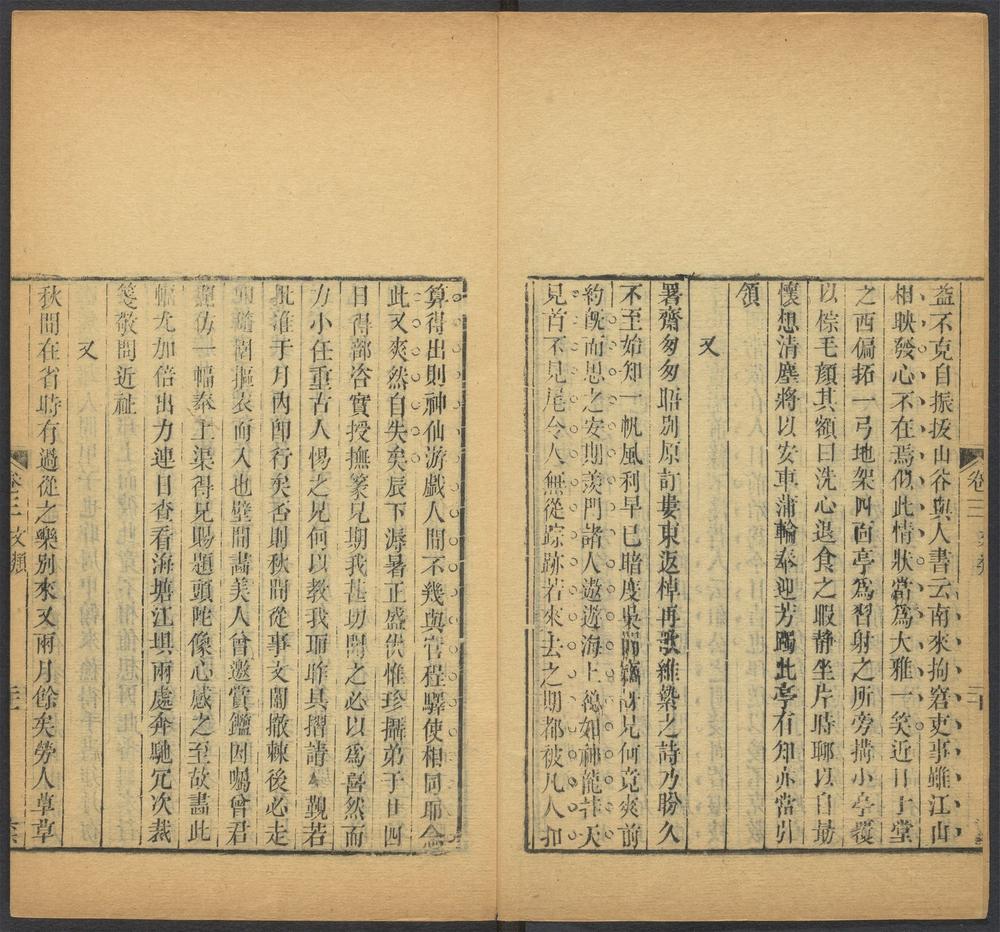 益不克自振拔山谷與人書云南來拘窘吏事雖江山
相映發心不在焉似此情狀當爲大雅一笑近日于堂
之西偏拓一弓地架四面亭爲習射之所旁搆小亭覆
以棕毛顏其額曰洗心退食之暇静坐片時聊以自勗
懷想清塵將以安車蒲輪奉迎芳躅此亭有知亦當引
領
又
署齋匆匆晤別原訂婁東返棹再歌維縶之詩乃盼久
不至始知一帆風利早已暗度吳閶竊訝兄何竟爽前
約旣而思之安期羨門諸人遨遊海上德如神龍在天
見首不見尾令人無從踪跡若來去之期都被凡人扣
卷三 文類 二十
算得出則神仙游戲人間不幾與官程驛使相同耶念
此又爽然自失矣辰下溽暑正盛伏惟珍攝弟于廿四
日得部咨實授撫篆兄期我甚切聞之必以爲喜然而
力小任重古人惕之兄何以教我耶昨具摺請 覲若
批准于月內卽行矣否則秋間從事文闈撤棘後必走
摳衣而入也壁間畫美人曾邀賞鑑因囑曾君
仿一幅奉上渠得兄賜題頭陀像心感之至故畫此
幅尤加倍出力連日查看海塘江垻兩處奔馳冗次裁
箋敬問近祉
又
秋間在省時有過從之樂別來又兩月餘矣勞人草草
卷三 文類